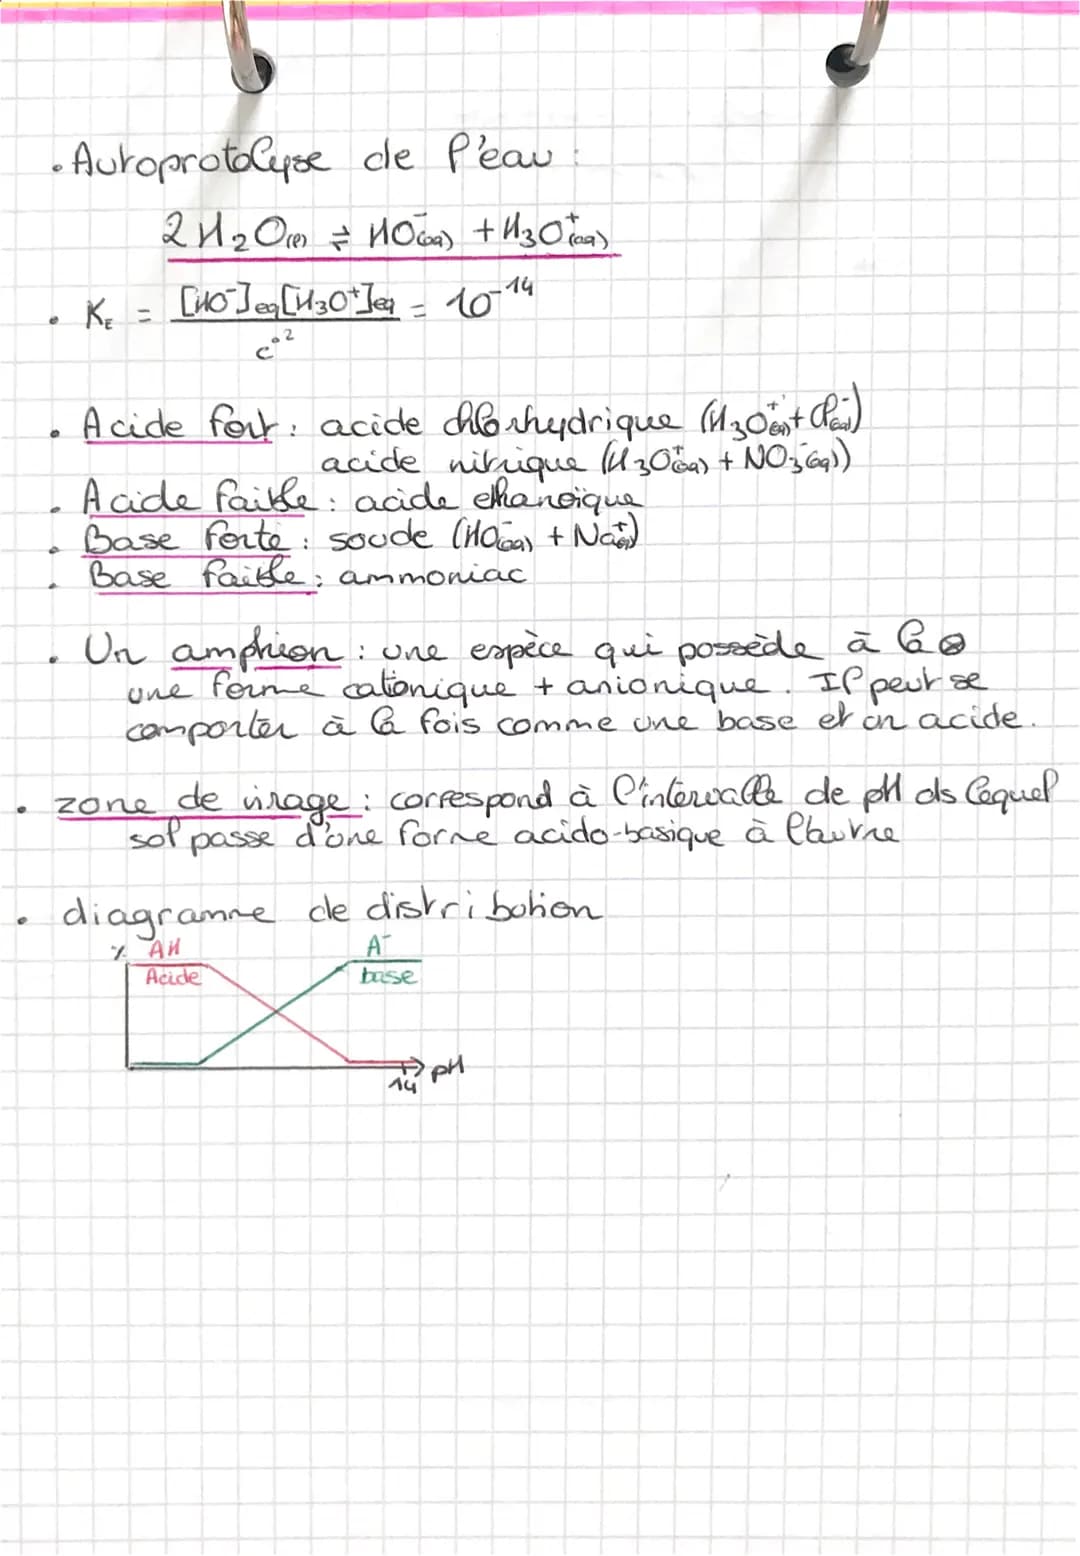 . Autoprotolyse de l'eau :
2 H₂O(l) ⇌ HO⁻(aq) + H₃O⁺(aq)
. Kᴇ = [HO⁻]eq[H₃O⁺]eq / c°² = 10⁻¹⁴
. Acide fort : acide chlorhydrique (H₃O⁺(aq) + Cl⁻(aq))
acide nitrique (H₃O⁺(aq) + NO₃⁻(aq))
. Acide faible : acide éthanoïque
. Base forte : soude (HO⁻(aq) + Na⁺(aq))
. Base faible : ammoniac
. Un amphion : une espèce qui possède à la
une forme cationique + anionique. Il peut se
comporter à la fois comme une base et un acide.
. zone de virage : correspond à l'intervalle de pH ds lequel
sol passe d'une forme acido-basique à l'autre
. diagramme de distribution
% AH A⁻
Acide base
14 pH